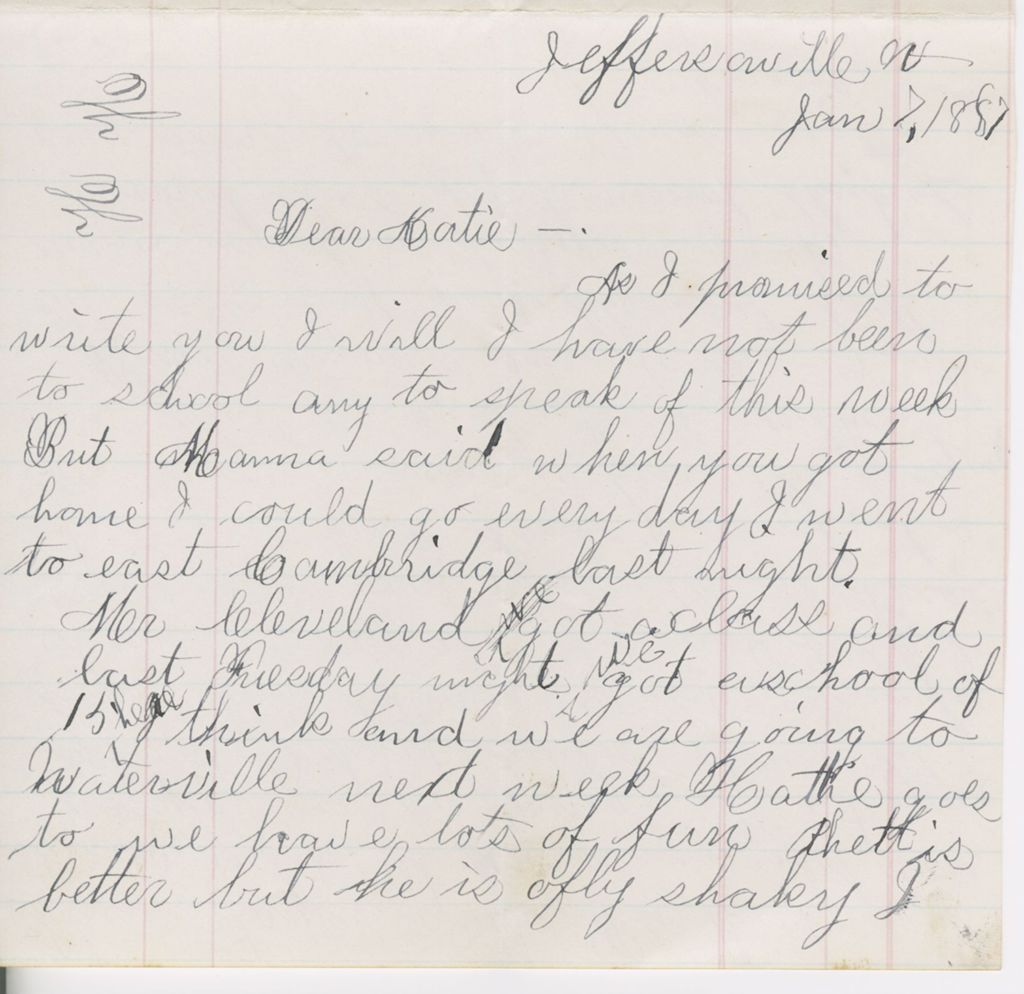 Jeffersonville, Vt
Jan 7, 1887
Dear Katie —.
As I promised to
write you I will I have not been
to school any to speak of this week
But Mamma said when you got
home I could go every day I went
to east Cambridge last night.
Mr Cleveland got a class and
last Tuesday night we got a school of
15 here think and we are going to
Waterville next week Hattie goes
to we have lots of fun Rhett is
better but he is ofly shaky I